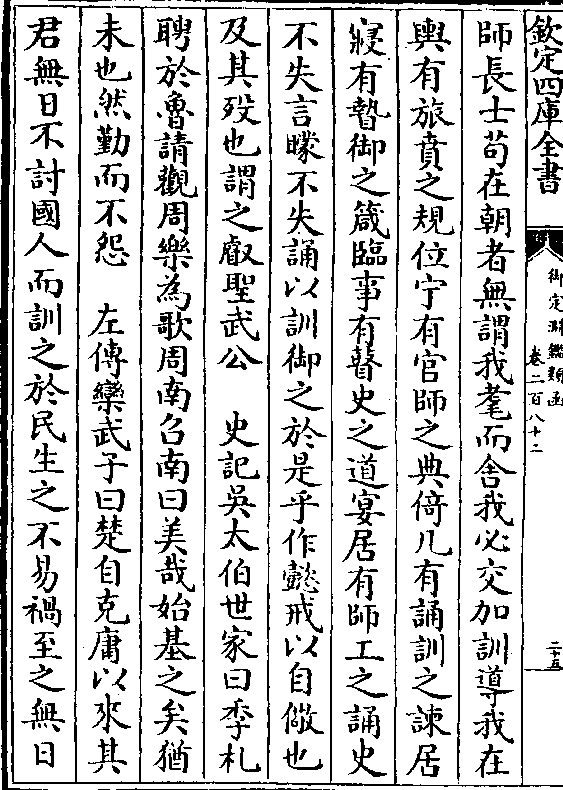 欽定四庫全書
御定淵鑑類函
卷二百八十二
二十五
師長士苟在朝者無謂我耄而舍我必交加訓導我在
輿有旅賁之規位宁有官師之典倚几有誦訓之諫居
寢有暬御之箴臨事有瞽史之道宴居有師工之誦史
不失言矇不失誦以訓御之於是乎作懿戒以自儆也
及其歿也謂之叡聖武公　史記吳太伯世家曰季札
聘於魯請觀周樂為歌周南召南曰美哉始基之矣猶
未也然勤而不怨　左傳欒武子曰楚自克庸以來其
君無日不討國人而訓之於民生之不易禍至之無日